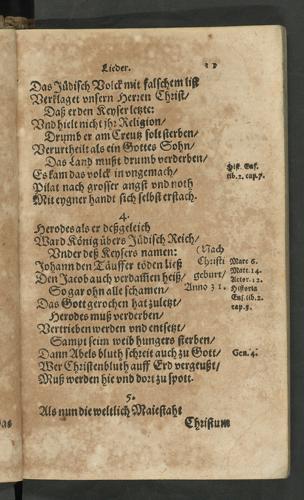 Lieder.
Das Jüdisch Volck mit falschem list
Verklaget vnsern Herren Christ/
Daß er den Keyser letzte:
Vnd hielt nicht jhr Religion/
Drumb er am Creutz solt sterben/
Verurtheilt als ein Gottes Sohn/
Das Land mußt drumb verderben/
Es kam das volck in vngemach/
Pilat nach grosser angst vnd noth
Mit eygner handt sich selbst erstach.
Hist. Eus.
lib. 2. cap. 7.
4.
Herodes als er deßgleich
Ward König übers Jüdisch Reich/
Vnder deß Keysers namen:
Johann den Täuffer töden ließ
Den Jacob auch verdammen heiß/
So gar ohn alle schamen/
Das Gott gerochen hat zu letzt/
Herodes muß verderben/
Vertrieben werden vnd entsetzt/
Sampt seim weib hungers sterben/
Dann Abels bluth schreit auch zu Gott/
Wer Christenbluth auff Erd vergeußt/
Muß werden hie vnd dort zu spott.
(Nach
Christi
geburt/
Anno 31.
Marc 6.
Matt. 14.
Actor. 12.
Historia
Eus. lib. 2.
cap. 5.
Gen. 4.
5.
Als nun die weltlich Maiestaht
Christum